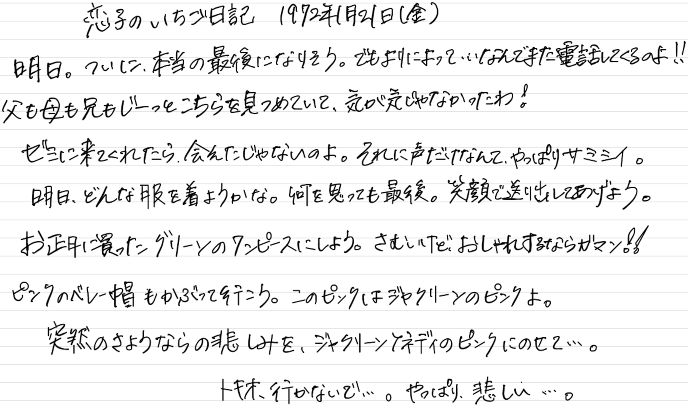 恋子のいちご日記 1972年1月21日(金)
明日。ついに、本当の最後になりそう。でもよりによって…なんでまた電話してくるのよ!!
父も母も兄もじーっとこちらを見つめていて、気が気じゃなかったわ!
ゼミに来てくれたら、会えたじゃないのよ。それに声だけなんて、やっぱりサミシイ。
明日、どんな服を着ようかな。何を思っても最後。笑顔で送り出してあげよう。
お正月に買ったグリーンのワンピースにしよう。さむいけど、おしゃれするならガマン!!
ピンクのベレー帽もかぶって行こう。このピンクはジャクリーンのピンクよ。
突然のさようならの悲しみを、ジャクリーンケネディのピンクにのせて…。
トキオ、行かないで…。やっぱり、悲しい…。